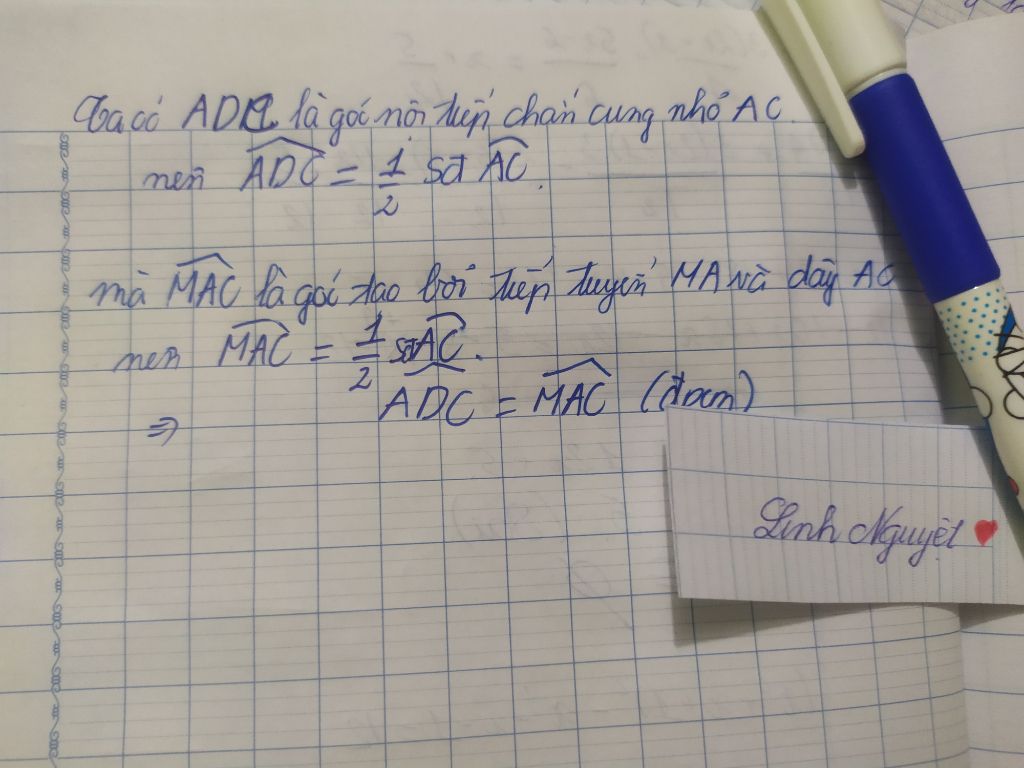 Ta có ADC là góc nội tiếp chắn cung nhỏ AC.
nên \widehat{ADC} = \frac{1}{2} sđ \overset{\frown}{AC}.
mà \widehat{MAC} là góc tạo bởi tiếp tuyến MA và dây AC
nên \widehat{MAC} = \frac{1}{2} sđ \overset{\frown}{AC}.
⇒ \widehat{ADC} = \widehat{MAC} (đpcm)
Linh Nguyệt